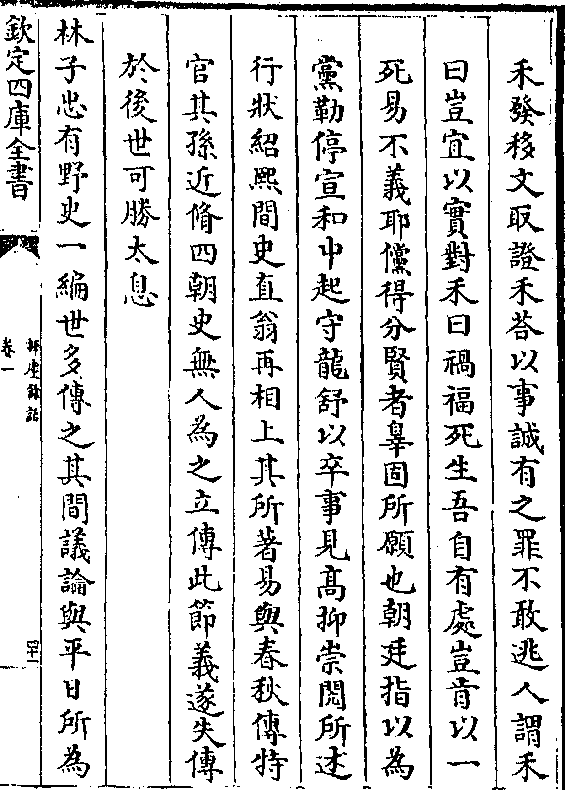 禾發移文取證禾荅以事誠有之罪不敢逃人謂禾
曰豈宜以實對禾曰禍福死生吾自有處豈肯以一
死易不義耶儻得分賢者辠固所願也朝廷指以為
黨勒停宣和中起守龍舒以卒事見髙抑崇閌所述
行狀紹熙間史直翁再相上其所著易與春秋傳特
官其孫近脩四朝史無人為之立傳此節義遂失傳
於後世可勝太息
林子忠有野史一編世多傳之其間議論與平日所為
欽定四庫全書
卷一